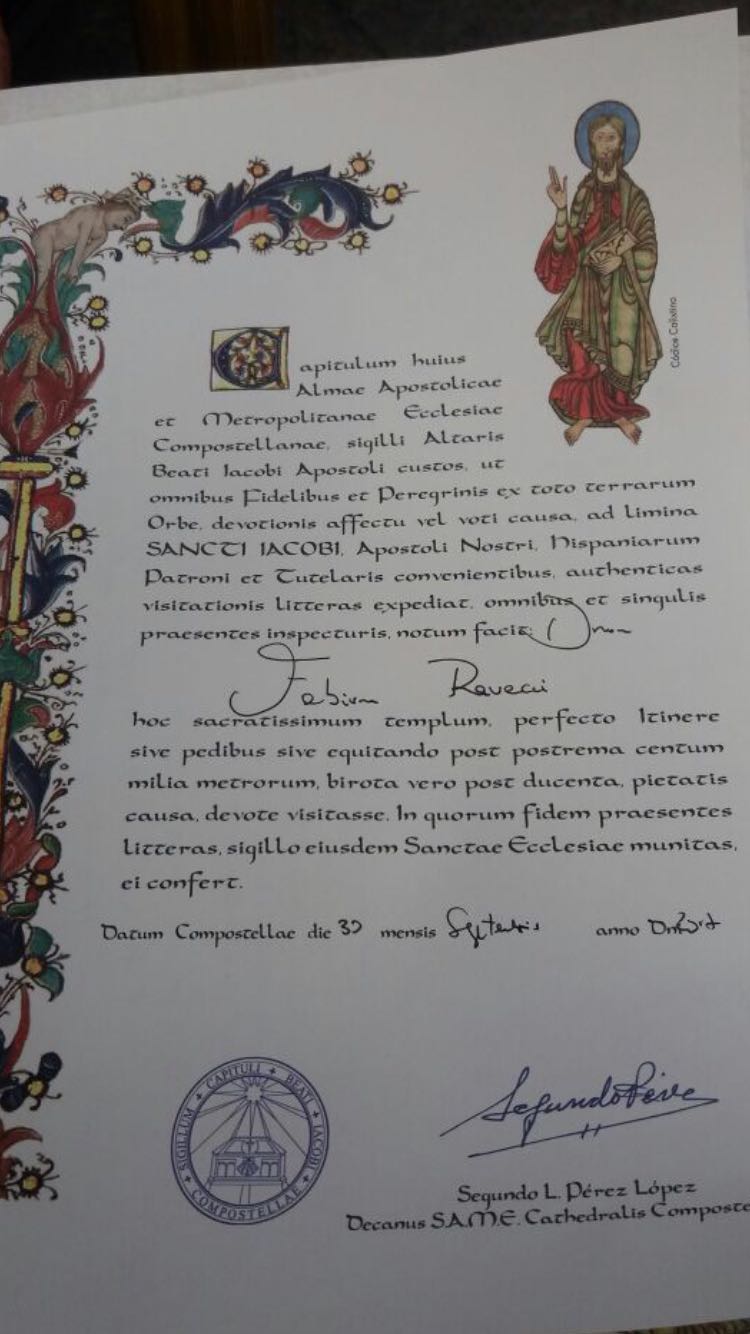 Códice Calixtino
Capitulum huius
Almae Apostolicae
et Metropolitanae Ecclesiae
Compostellanae, sigilli Altaris
Beati Iacobi Apostoli custos, ut
omnibus Fidelibus et Peregrinis ex toto terrarum
Orbe, devotionis affectu vel voti causa, ad limina
SANCTI IACOBI, Apostoli Nostri, Hispaniarum
Patroni et Tutelaris convenientibus, authenticas
visitationis litteras expediat, omnibus et singulis
praesentes inspecturis, notum facit:
hoc sacratissimum templum, perfecto Itinere
sive pedibus sive equitando post postrema centum
milia metrorum, birota vero post ducenta, pietatis
causa, devote visitasse. In quorum fidem praesentes
litteras, sigillo eiusdem Sanctae Ecclesiae munitas,
ei confert.
Datum Compostellae die 30 mensis Septembris anno
SIGILLUM CAPITULI BEATI IACOBI COMPOSTELLAE
Segundo L. Pérez López
Decanus S.A.M.E. Cathedralis